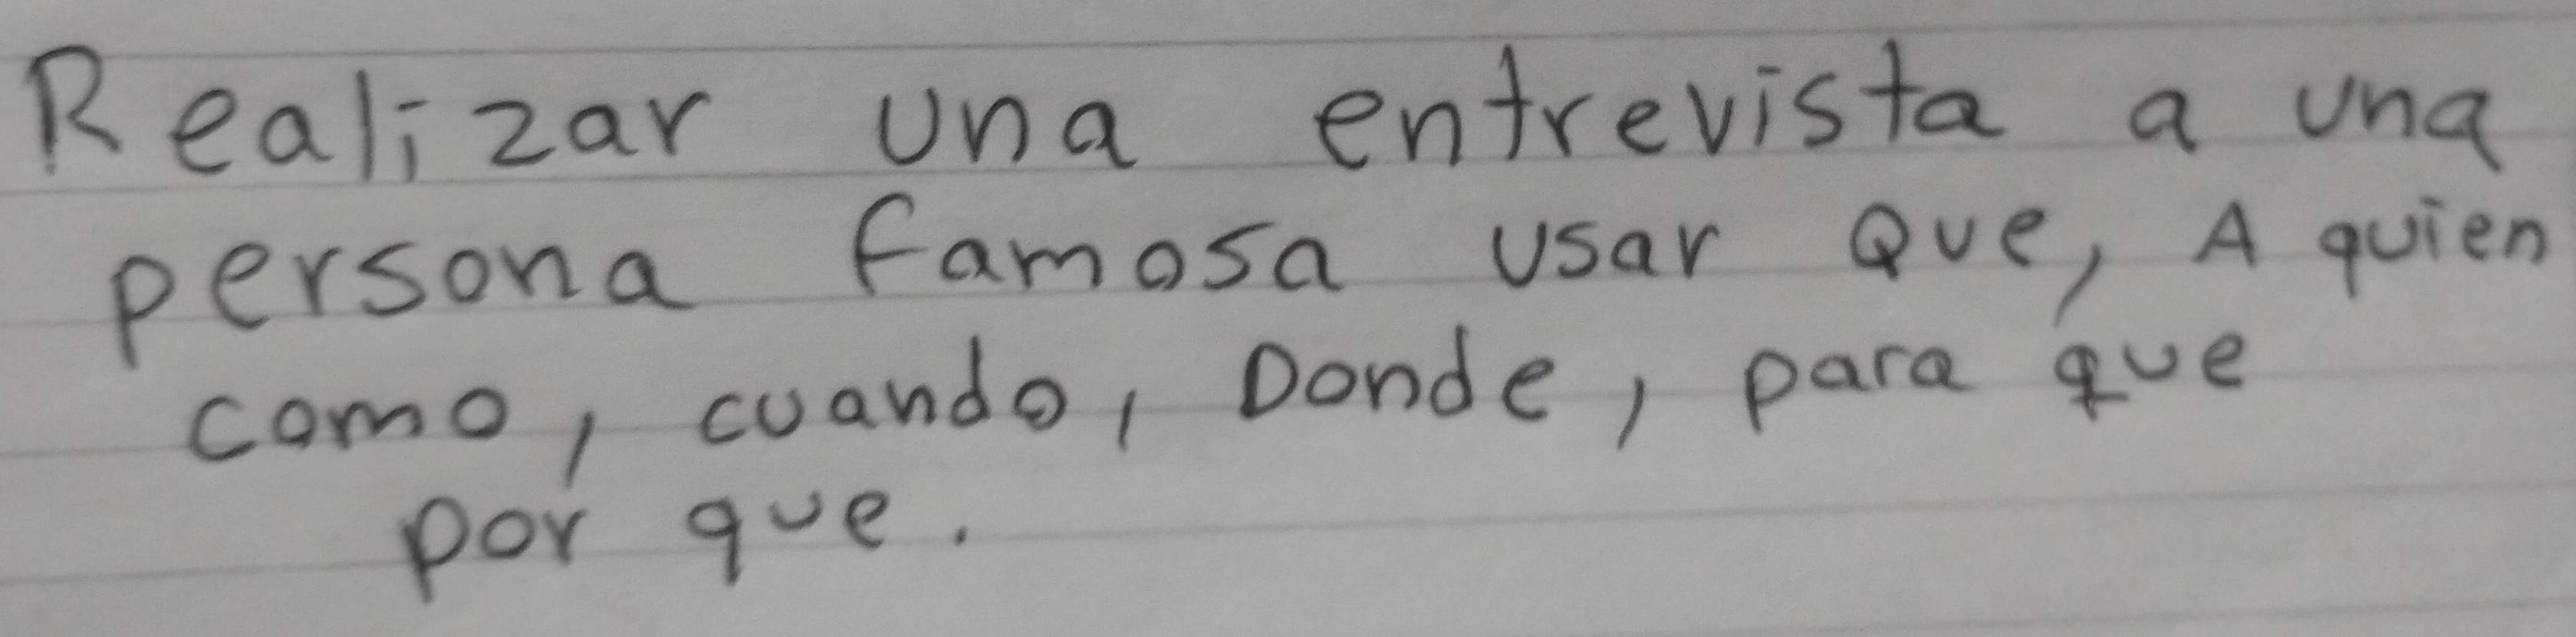 Realizar una entrevista a una
persona famosa usar Que, A quien
como, cuando, Donde, para que
por que.